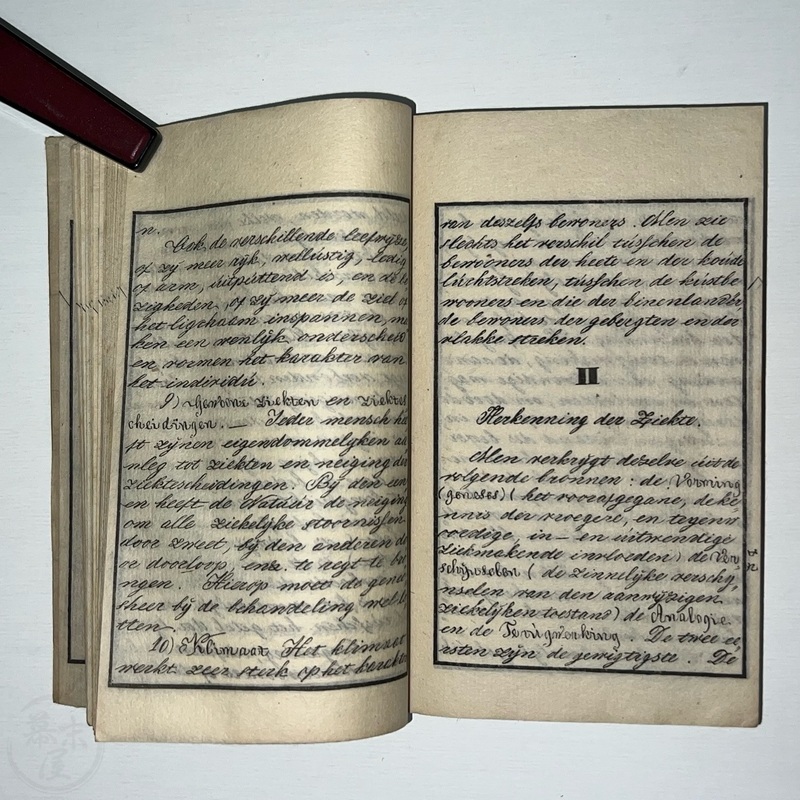 n.
Ook de verschillende leefwyze,
of zy meer ryk, wellustig, ledig
of arm, uitputtend is, en de be
zigheden, of zy meer de ziel of
het ligchaam inspannen, ma
ken een ronlyk onderscheid
en, vormen het karakter van
het individu.
9) Gewone ziekten en ziektes
cheidingen. — Ieder mensch he
ft zynen eigendommelyken aa
nleg tot ziekten en neiging der
ziektescheidingen. By den een
en heeft de Natuur de neiging
om alle ziekelyke stoornissen
door zweet, by den anderen do
or doorloop, enz. te regt te bre
ngen. Hierop moet de genee
sheer by de behandeling wel le
tten.
10) Klimaat Het klimaat
werkt zeer sterk op het karakter
van deszelfs bewoners. Men zie
slechts het verschil tusschen de
bewoners der heete en der koude
luchtstreken, tusschen de kustbe
wooners en die der binenlanden,
de bewoners der gebergten en der
vlakke streken.
II
Herkenning der Ziekte.
Men verkrygt dezelve uit de
volgende bronnen: de Vorming
(geneses) (het voorafgegane, de ke
nnis der vroegere, en tegenw
oordige, in- en uitwendige
ziekmakende invloeden) de Ver
schynselen (de zinnelyke verschy
nselen van den aanwyzigen
ziekelyken toestand) de Analogie
en de Terugwerking. De twee ee
rsten zyn de gewigtigste. De